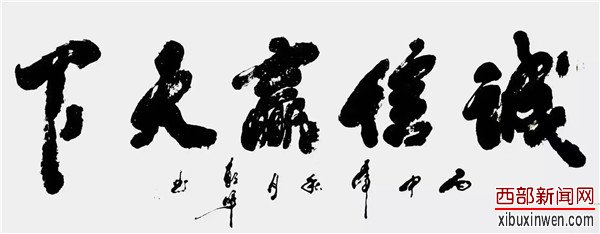 诚信赢天下
丙申年秋月
西部新闻网
xibuxinwen.com